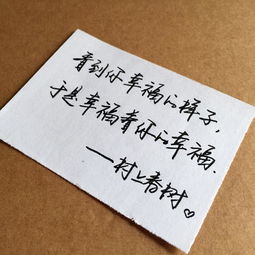 看到你幸福的样子,
于是幸福着你的幸福.
——村上春树♡